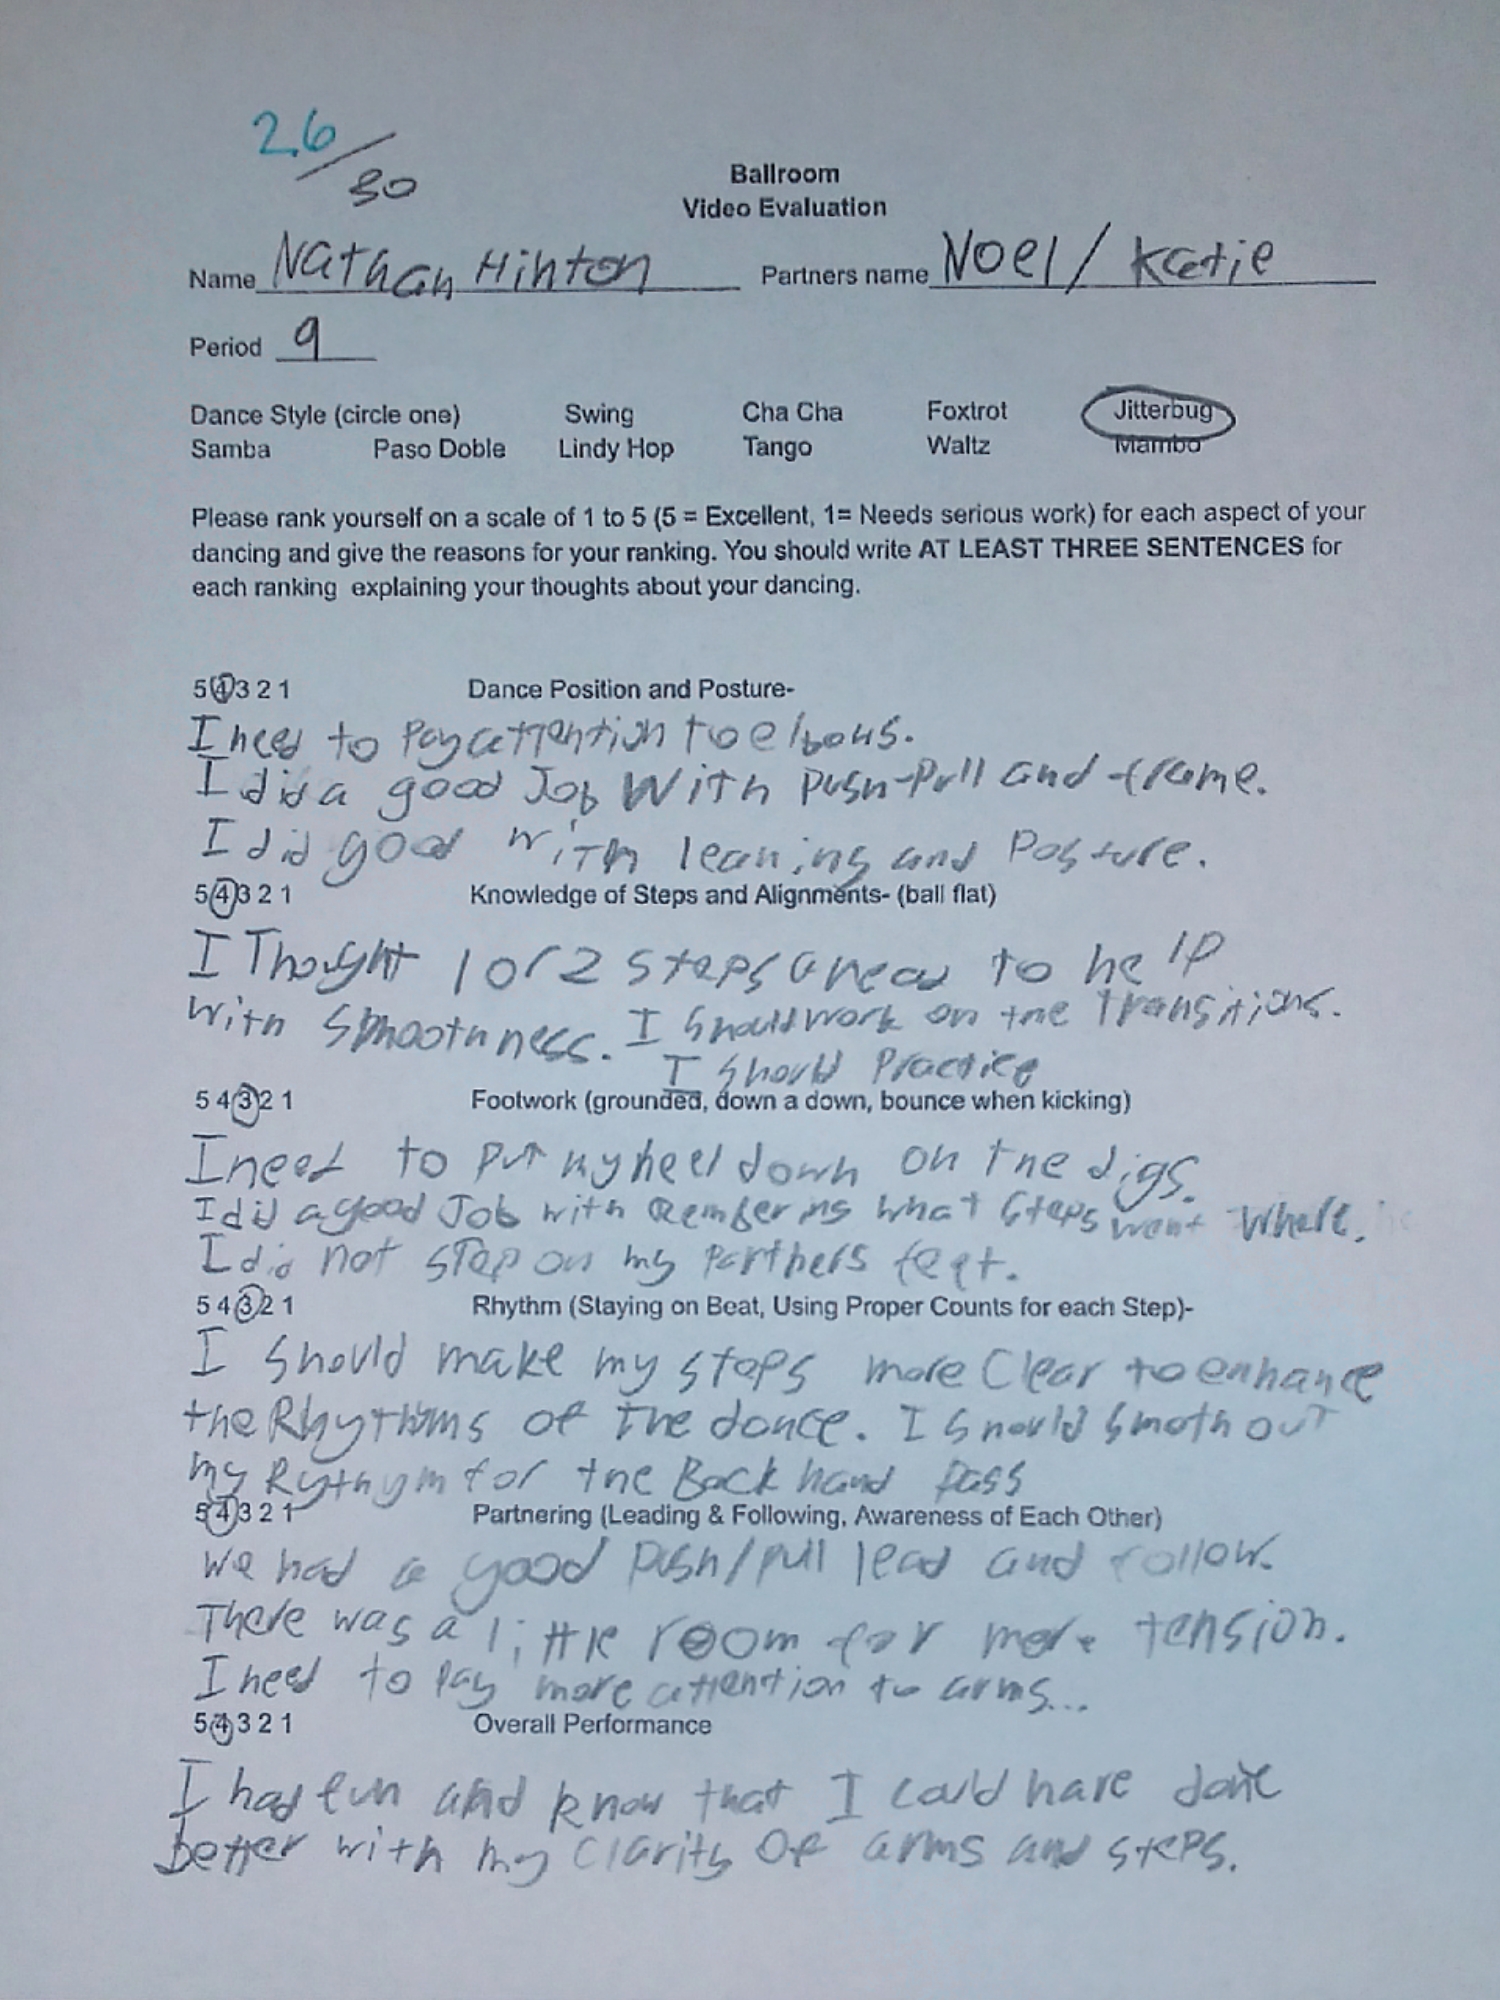 26/30
Ballroom
Video Evaluation
Name Nathan Hinton Partners name Noel/Katie
Period 9
Dance Style (circle one) Swing Cha Cha Foxtrot Jitterbug
Samba Paso Doble Lindy Hop Tango Waltz Mambo
Please rank yourself on a scale of 1 to 5 (5 = Excellent, 1= Needs serious work) for each aspect of your
dancing and give the reasons for your ranking. You should write AT LEAST THREE SENTENCES for
each ranking explaining your thoughts about your dancing.
5 4 3 2 1 Dance Position and Posture-
I need to Pay attention to elbows.
I did a good Job With Push-Pull and frame.
I did good with leaning and Posture.
5 4 3 2 1 Knowledge of Steps and Alignments- (ball flat)
I Thought 1 or 2 steps ahead to help
with Smoothness. I Should work on the transitions.
I should Practice
5 4 3 2 1 Footwork (grounded, down a down, bounce when kicking)
I need to put my heel down on the digs.
I did a good Job with Remberins what Steps went where.
I did not step on my Partners feet.
5 4 3 2 1 Rhythm (Staying on Beat, Using Proper Counts for each Step)-
I should make my steps more Clear to enhance
the Rhythms of the dance. I Should Smoth out
my Rythym for the Back hand pass
5 4 3 2 1 Partnering (Leading & Following, Awareness of Each Other)
We had a good push/pull lead and follow.
There was a little room for more tension.
I need to pay more attention to arms...
5 4 3 2 1 Overall Performance
I had fun and know that I could have done
better with my Clarity Of arms and steps.